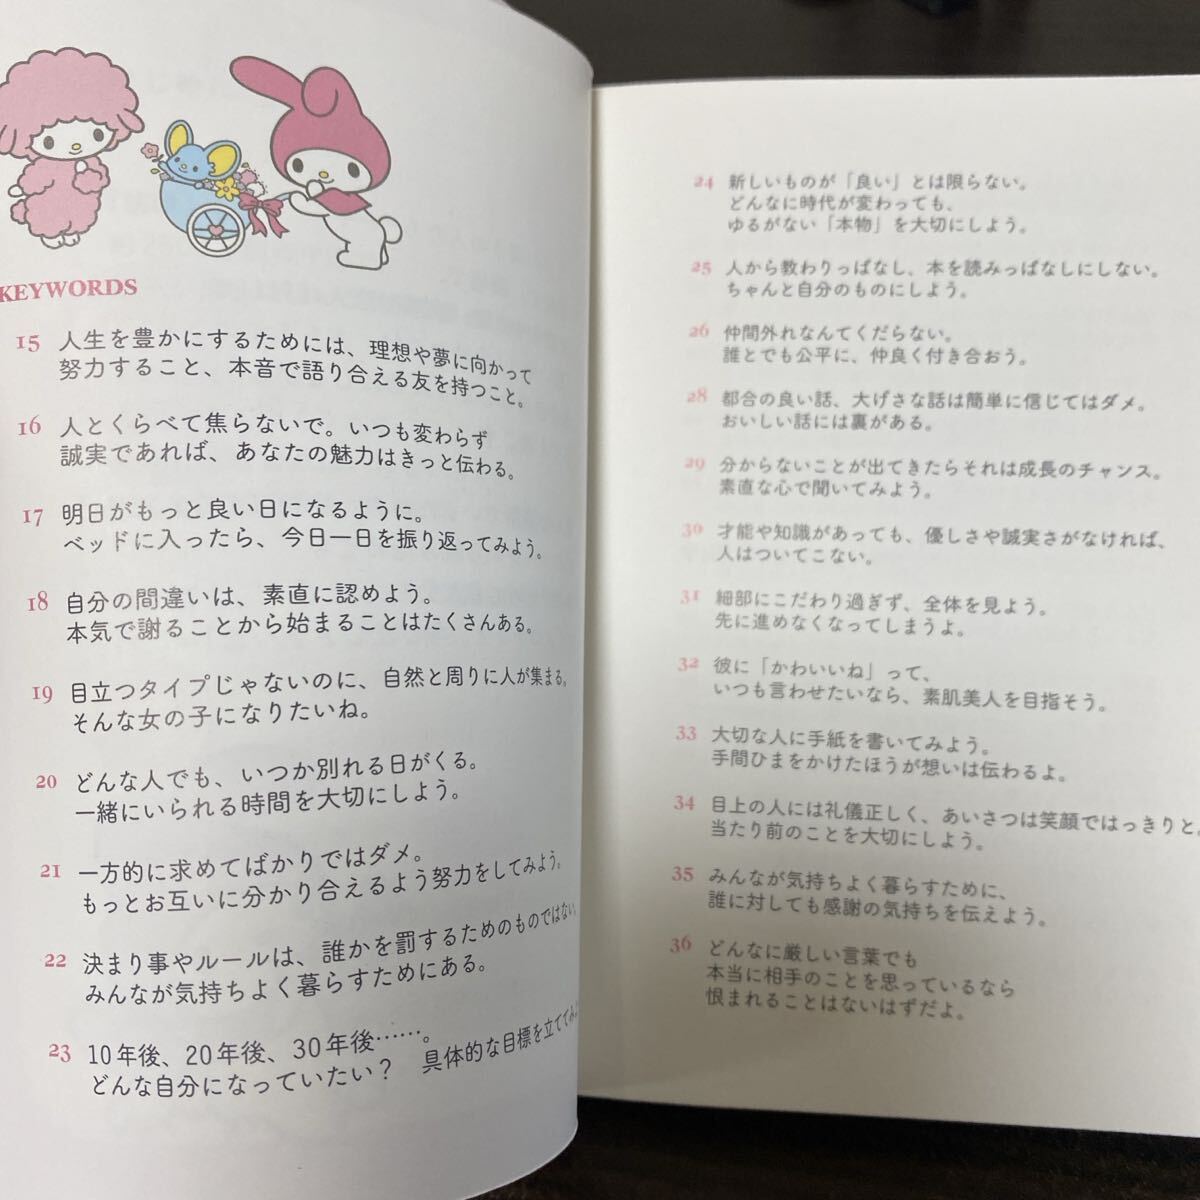 KEYWORDS
15 人生を豊かにするためには、理想や夢に向かって
努力すること、本音で語り合える友を持つこと。
16 人とくらべて焦らないで。いつも変わらず
誠実であれば、あなたの魅力はきっと伝わる。
17 明日がもっと良い日になるように。
ベッドに入ったら、今日一日を振り返ってみよう。
18 自分の間違いは、素直に認めよう。
本気で謝ることから始まることはたくさんある。
19 目立つタイプじゃないのに、自然と周りに人が集まる。
そんな女の子になりたいね。
20 どんな人でも、いつか別れる日がくる。
一緒にいられる時間を大切にしよう。
21 一方的に求めてばかりではダメ。
もっとお互いに分かり合えるよう努力をしてみよう。
22 決まり事やルールは、誰かを罰するためのものではない。
みんなが気持ちよく暮らすためにある。
23 10年後、20年後、30年後……。
どんな自分になっていたい? 具体的な目標を立ててみ
24 新しいものが「良い」とは限らない。
どんなに時代が変わっても、
ゆるがない「本物」を大切にしよう。
25 人から教わりっぱなし、本を読みっぱなしにしない。
ちゃんと自分のものにしよう。
26 仲間外れなんてくだらない。
誰とでも公平に、仲良く付き合おう。
28 都合の良い話、大げさな話は簡単に信じてはダメ。
おいしい話には裏がある。
29 分からないことが出てきたらそれは成長のチャンス。
素直な心で聞いてみよう。
30 才能や知識があっても、優しさや誠実さがなければ、
人はついてこない。
31 細部にこだわり過ぎず、全体を見よう。
先に進めなくなってしまうよ。
32 彼に「かわいいね」って、
いつも言わせたいなら、素肌美人を目指そう。
33 大切な人に手紙を書いてみよう。
手間ひまをかけたほうが想いは伝わるよ。
34 目上の人には礼儀正しく、あいさつは笑顔ではっきりと。
当たり前のことを大切にしよう。
35 みんなが気持ちよく暮らすために、
誰に対しても感謝の気持ちを伝えよう。
36 どんなに厳しい言葉でも
本当に相手のことを思っているなら
恨まれることはないはずだよ。